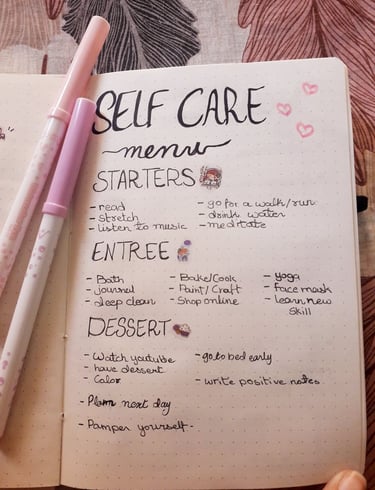 SELF CARE
menu
STARTERS
- read
- stretch
- listen to music
- go for a walk/run
- drink water
- meditate
ENTREE
- Bath
- journal
- deep clean
- Bake/Cook
- Paint/Craft
- Shop online
- yoga
- Face mask
- learn new
skill
DESSERT
- Watch youtube
- have dessert
- Color
- Plan next day
- Pamper yourself-
- go to bed early
- write positive notes